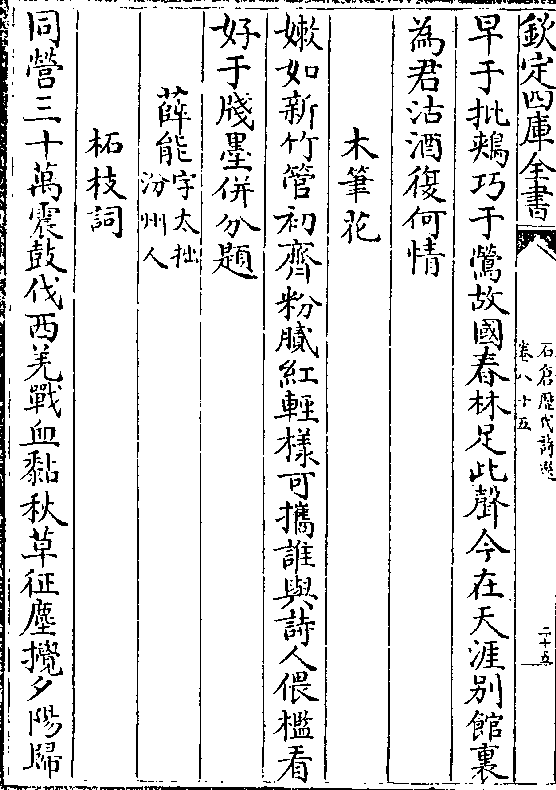 欽定四庫全書
石倉歷代詩選
卷八十五
二十五
早于批鵊巧于鶯故國春林足此聲今在天涯別館裏
為君沽酒復何情
木筆花
嫩如新竹管初齊粉膩紅輕様可攜誰與詩人偎檻看
好于牋墨併分題
薛能字太拙
汾州人
柘枝詞
同營三十萬震鼓伐西羌戰血黏秋草征塵攪夕陽歸